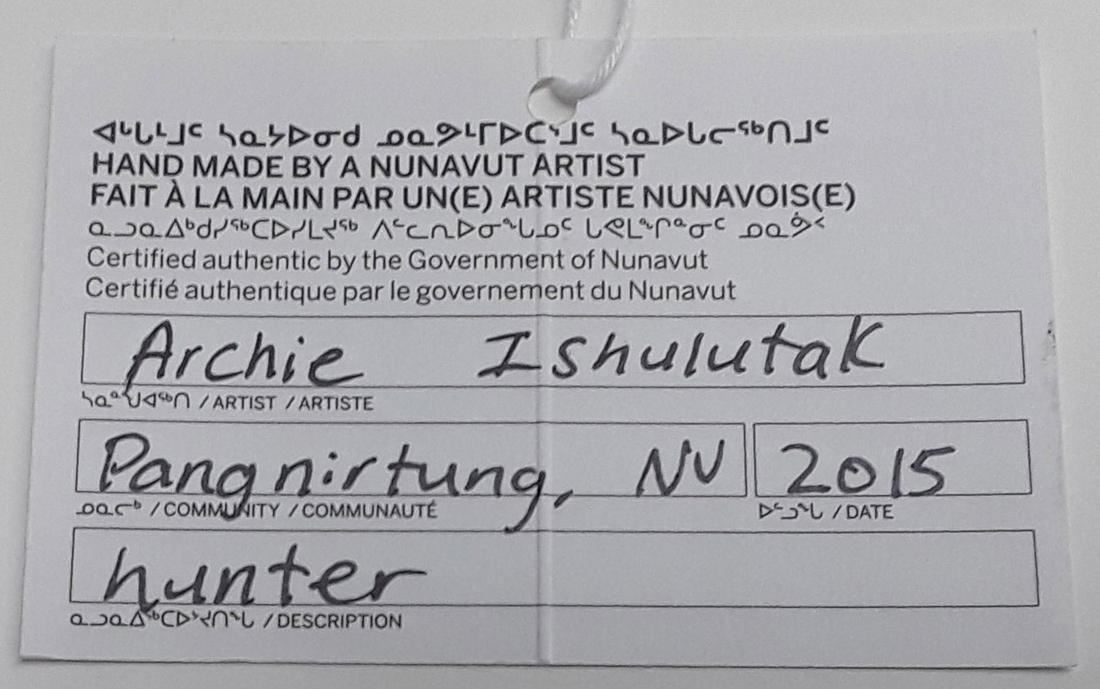 ᐊᒡᒐᒻᒧᑦ ᓴᓇᔭᐅᓂᑯ ᓄᓇᕗᒻᒥᐅᑕᕐᒧᑦ ᓴᓇᐅᒐᓕᖅᑎᒧᑦ
HAND MADE BY A NUNAVUT ARTIST
FAIT À LA MAIN PAR UN(E) ARTISTE NUNAVOIS(E)
ᓇᓗᓇᐃᒃᑯᓯᖅᑕᐅᓯᒪᔪᖅ ᐱᓪᓚᕆᐅᓂᖓᓄᑦ ᒐᕙᒪᒃᑯᓐᓄᑦ ᓄᓇᕗᑦ
Certified authentic by the Government of Nunavut
Certifié authentique par le governement du Nunavut
Archie Ishulutak
ᓴᓇᙳᐊᖅᑎ / ARTIST / ARTISTE
Pangnirtung, NU 2015
ᓄᓇᓕᒃ / COMMUNITY / COMMUNAUTÉ ᐅᓪᓗᖓ / DATE
hunter
ᓇᓗᓇᐃᖅᑕᐅᔾᔪᑎᖓ / DESCRIPTION